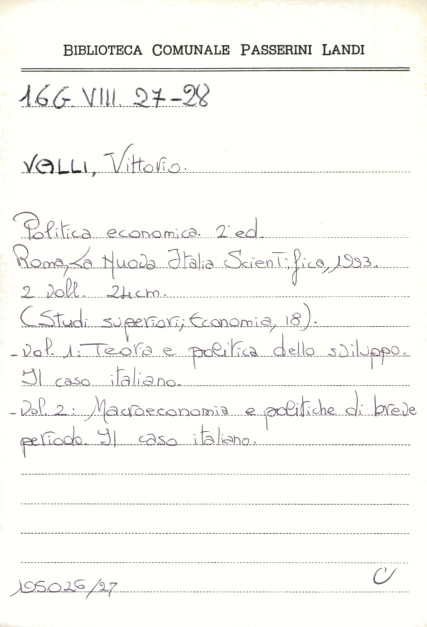 BIBLIOTECA COMUNALE PASSERINI LANDI
16G. VIII. 27-28
VALLI, Vittorio.
Politica economica. 2ª ed.
Roma, La Nuova Italia Scientifica, 1993.
2 voll. 24cm.
(Studi superiori; Economia, 18).
- Vol. 1: Teoria e politica dello sviluppo.
Il caso italiano.
- Vol. 2: Macroeconomia e politiche di breve
periodo. Il caso italiano.
195026/27
C